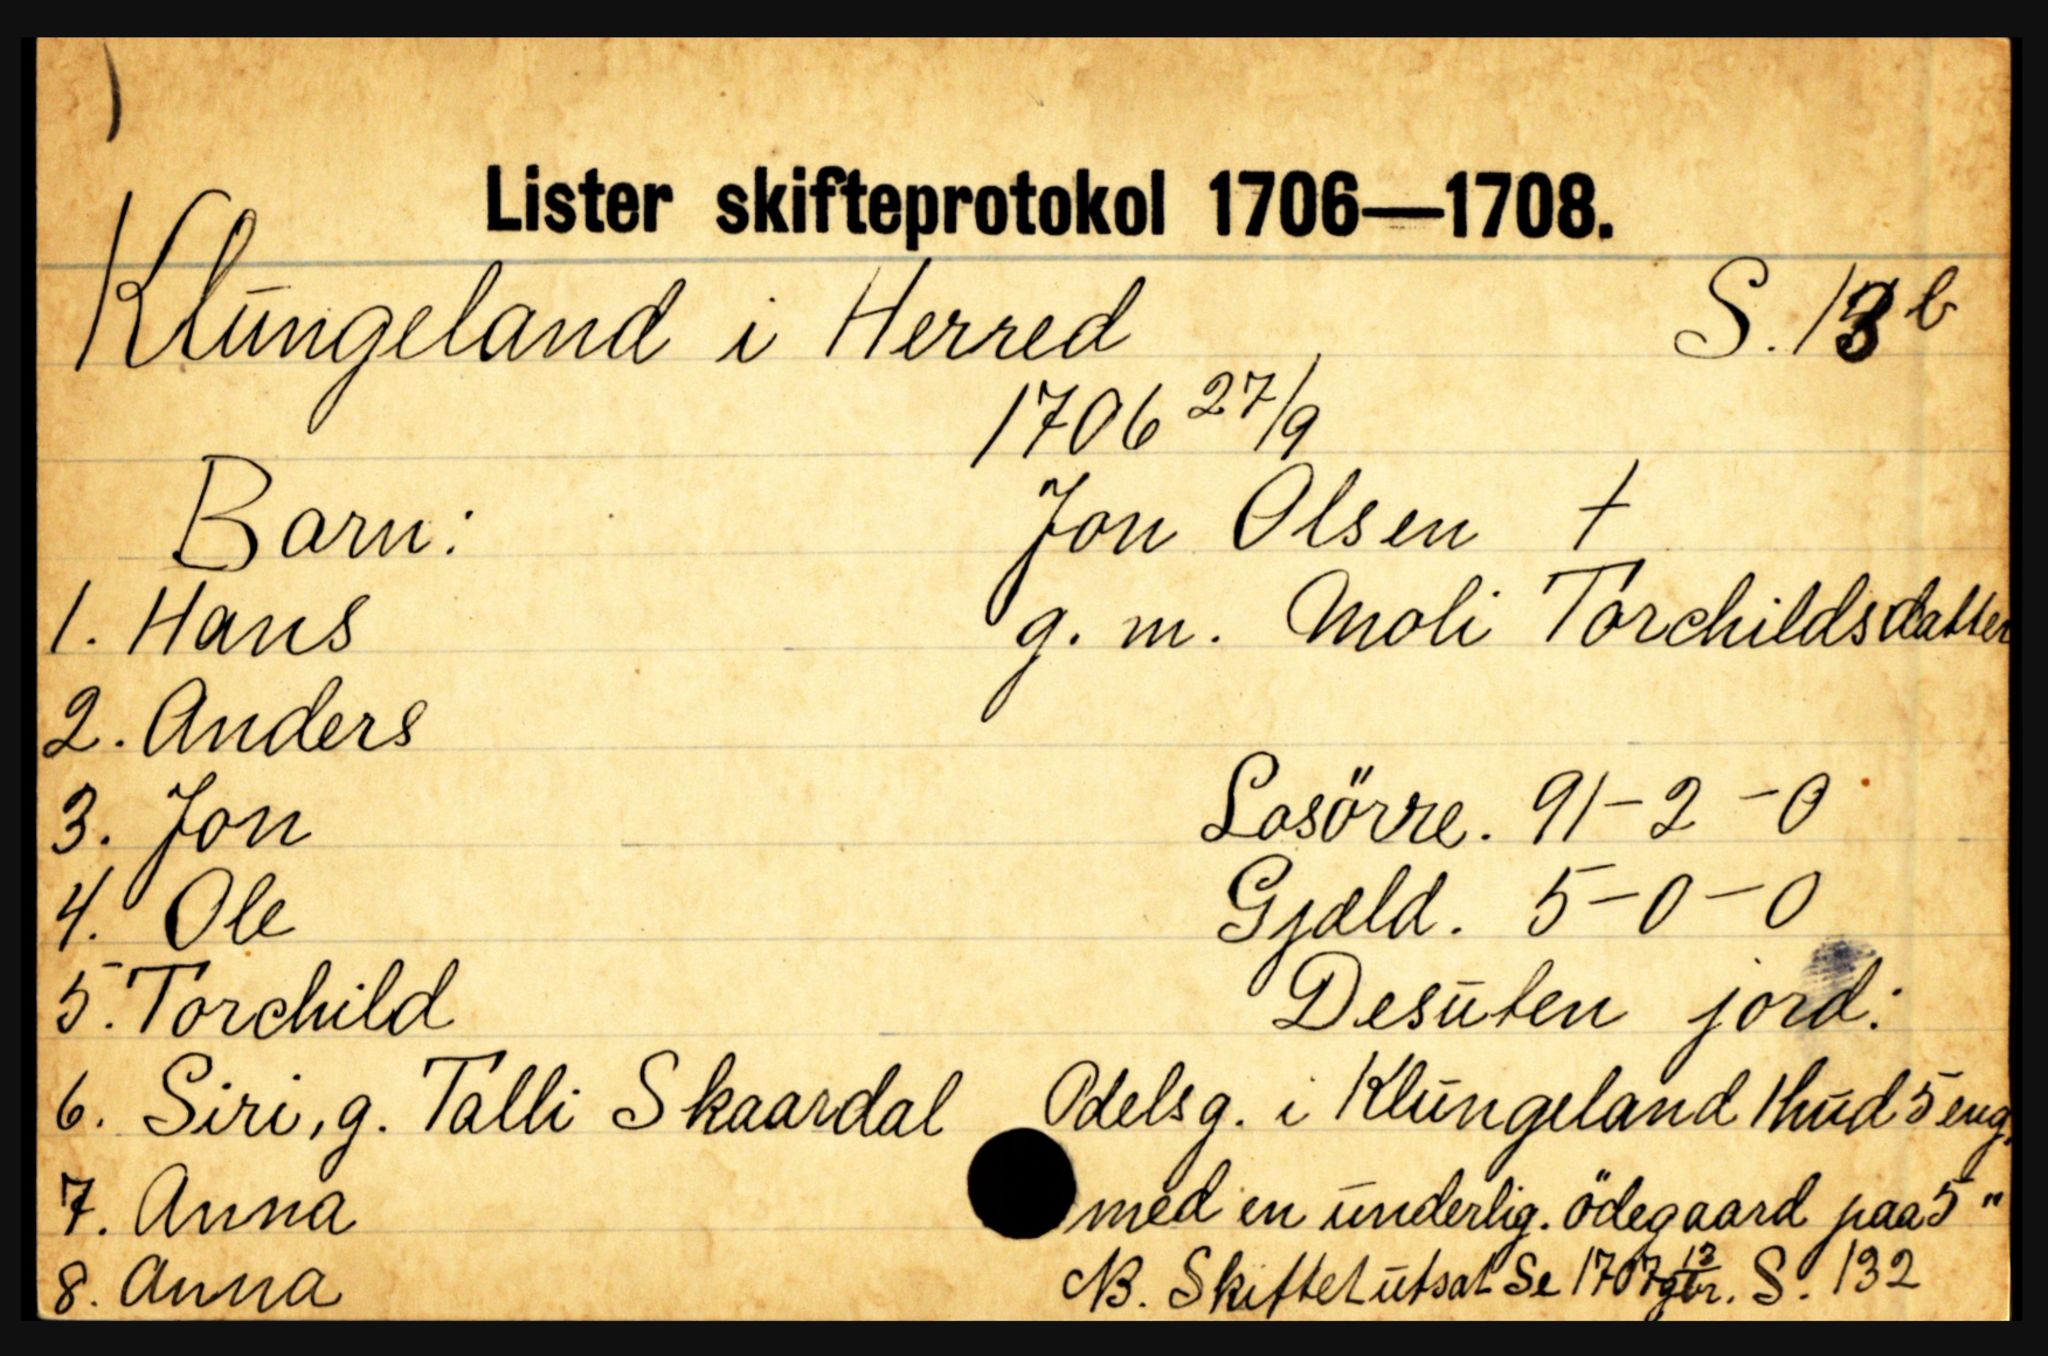 Lister skifteprotokol 1706—1708.
Klungeland i Herred S. 13 b
1706 27/9
Barn: Jon Olsen †
1. Hans g. m. Moli Torchildsdatter
2. Anders
3. Jon Losörre. 91-2-0
4. Ole Gjæld. 5-0-0
5. Torchild Desuten jord:
6. Siri, g. Talli Skaardal Odelsg. i Klungeland 1 hud 5 eng.
7. Anna med en underlig. ödegaard paa 5 "
8. Anna NB. Skiftet utsat Se 1707 S. 132